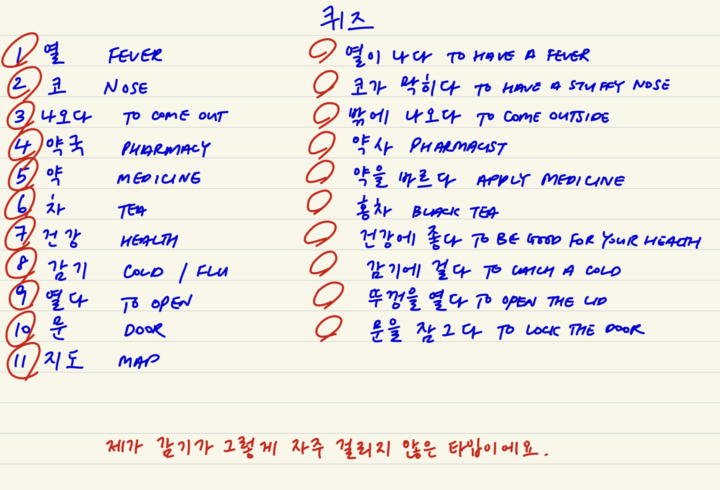 퀴즈
1 열 FEVER 열이 나다 TO HAVE A FEVER
2 코 NOSE 코가 막히다 TO HAVE A STUFFY NOSE
3 나오다 TO COME OUT 밖에 나오다 TO COME OUTSIDE
4 약국 PHARMACY 약사 PHARMACIST
5 약 MEDICINE 약을 바르다 APPLY MEDICINE
6 차 TEA 홍차 BLACK TEA
7 건강 HEALTH 건강에 좋다 TO BE GOOD FOR YOUR HEALTH
8 감기 COLD / FLU 감기에 걸다 TO CATCH A COLD
9 열다 TO OPEN 뚜껑을 열다 TO OPEN THE LID
10 문 DOOR 문을 잠그다 TO LOCK THE DOOR
11 지도 MAP
제가 감기가 그렇게 자주 걸리지 않은 타입이에요.